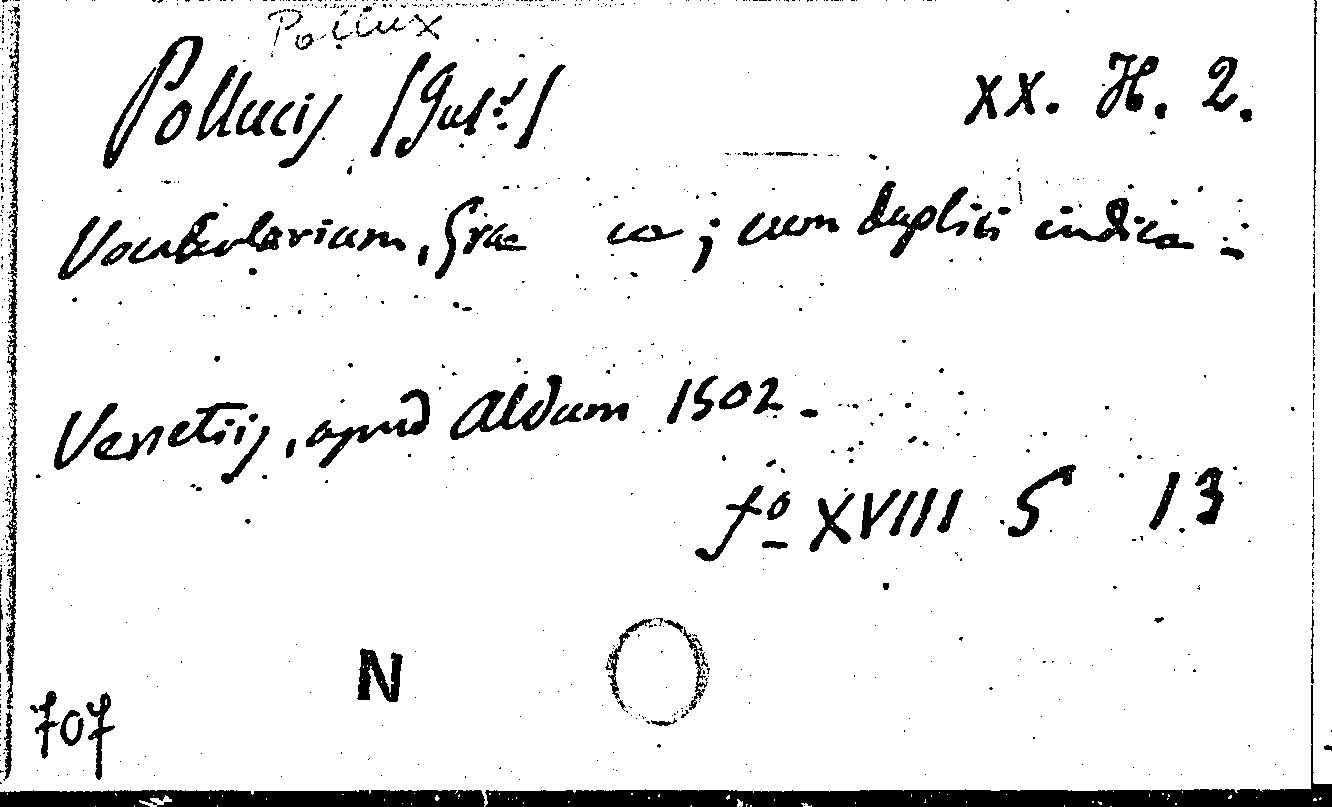 Pollux
Pollucis (Jul.) XX. H. 2.
Vocabularium, Grae ce; cum duplici indice -
Venetiis, apud Aldum 1502.-
fº XVIII S 13
N
707